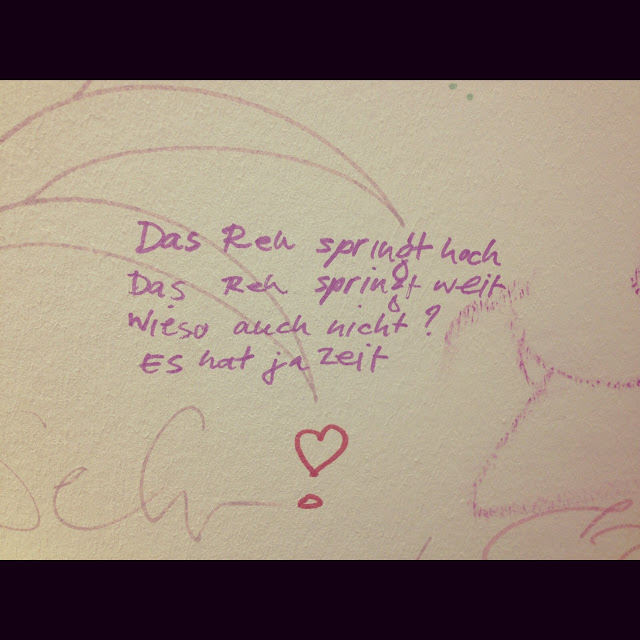 Das Reh springt hoch
Das Reh springt weit
Wieso auch nicht?
Es hat ja Zeit